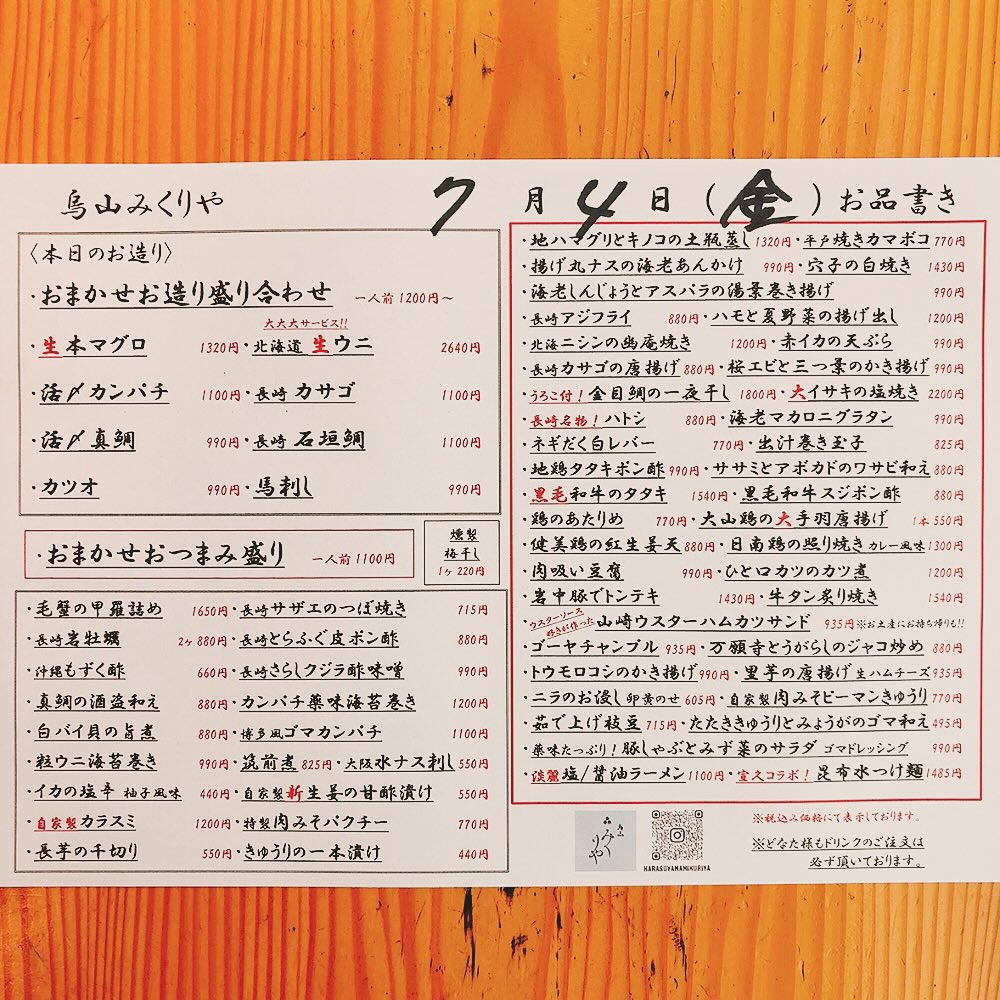 烏山みくりや
7月4日(金)お品書き
〈本日のお造り〉
・おまかせお造り盛り合わせ 一人前1200円～
大大大サービス!!
・生本マグロ 1320円・北海道 生ウニ 2640円
・活〆カンパチ 1100円・長崎 カサゴ 1100円
・活〆真鯛 990円・長崎 石垣鯛 1100円
・カツオ 990円・馬刺し 990円
・おまかせおつまみ盛り 一人前1100円
燻製
梅干し
1ヶ220円
・毛蟹の甲羅詰め 1650円・長崎サザエのつぼ焼き 715円
・長崎岩牡蠣 2ヶ880円・長崎とらふぐ皮ポン酢 880円
・沖縄もずく酢 660円・長崎さらしクジラ酢味噌 990円
・真鯛の酒盗和え 880円・カンパチ薬味海苔巻き 1200円
・白バイ貝の旨煮 880円・博多風ゴマカンパチ 1100円
・粒ウニ海苔巻き 990円・筑前煮 825円・大阪水ナス刺し 550円
・イカの塩辛 柚子風味 440円・自家製新生姜の甘酢漬け 550円
・自家製カラスミ 1200円・特製肉みそパクチー 770円
・長芋の千切り 550円・きゅうりの一本漬け 440円
・地ハマグリとキノコの土瓶蒸し 1320円・平戸焼きカマボコ 770円
・揚げ丸ナスの海老あんかけ 990円・穴子の白焼き 1430円
・海老しんじょうとアスパラの湯景巻き揚げ 990円
・長崎アジフライ 880円・ハモと夏野菜の揚げ出し 1200円
・北海ニシンの幽庵焼き 1200円・赤イカの天ぷら 990円
・長崎カサゴの唐揚げ 880円・桜エビと三つ葉のかき揚げ 990円
・うろこ付!金目鯛の一夜干し 1800円・大イサキの塩焼き 2200円
・長崎名物!ハトシ 880円・海老マカロニグラタン 990円
・ネギだく白レバー 770円・出汁巻き玉子 825円
・地鶏タタキポン酢 990円・ササミとアボカドのワサビ和え 880円
・黒毛和牛のタタキ 1540円・黒毛和牛スジポン酢 880円
・鶏のあたりめ 770円・大山鶏の大手羽唐揚げ 1本550円
・健美鶏の紅生姜天 880円・日南鶏の照り焼き カレー風味 1300円
・肉吸い豆腐 990円・ひと口カツのカツ煮 1200円
・岩中豚でトンテキ 1430円・牛タン炙り焼き 1540円
・ウスターソース好きが作った 山崎ウスターハムカツサンド 935円※お土産にお持ち帰りも!!
・ゴーヤチャンプル 935円・万願寺とうがらしのジャコ炒め 880円
・トウモロコシのかき揚げ 990円・里芋の唐揚げ 生ハムチーズ 935円
・ニラのお浸し 卵黄のせ 605円・自家製肉みそピーマンきゅうり 770円
・茹で上げ枝豆 715円・たたききゅうりとみょうがのゴマ和え 495円
・薬味たっぷり!豚しゃぶとみず菜のサラダ ゴマドレッシング 990円
・淡麗塩/醤油ラーメン 1100円・宣久コラボ!昆布水つけ麺 1485円
みくりや
KARASUYAMAMIKURIYA
※税込み価格にて表示しております。
※どなた様もドリンクのご注文は
必ず頂いております。